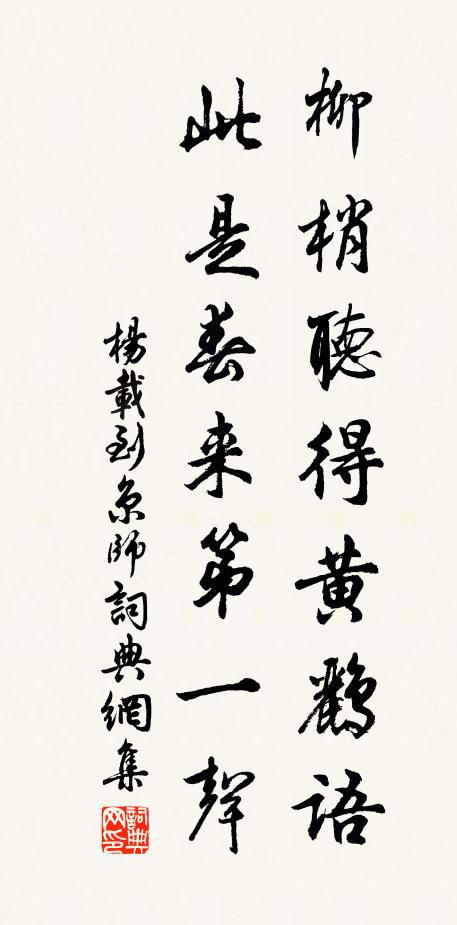 柳梢聽得黄鸝語
此是春来第一聲
楊載到京師詞典網集
詞典网印